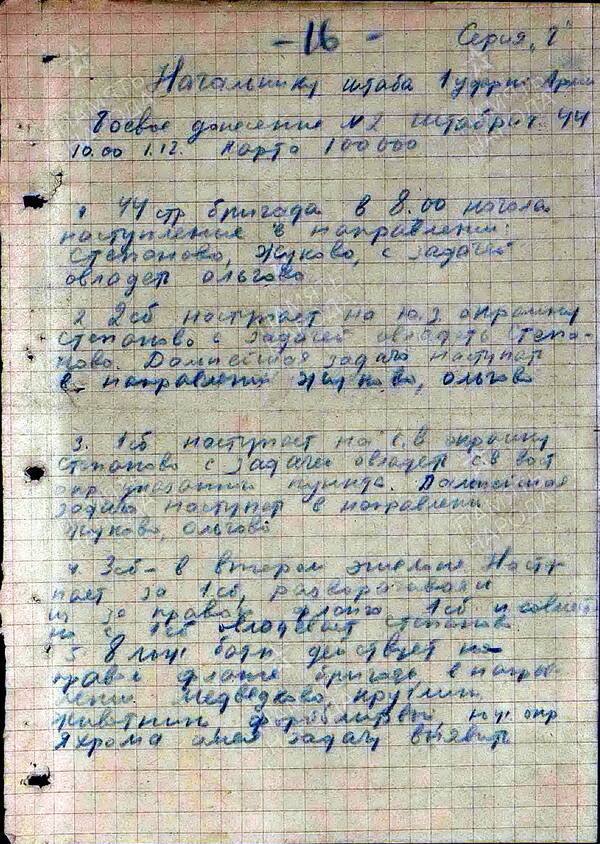 - 16 -
Серия "Г"
Начальнику штаба 1 ударн. Армии
Боевое донесение №2 штабриг. 44
10.00 1.12. Карта 100000
1 44 стр бригада в 8.00 начала
наступление в направлении:
Степаново, Жуково, с задачей
овладеть Ольгово
2 2сб наступает на ю.з окраину
Степаново с задачей овладеть Степа-
ново. Дальнейшая задача наступать
в направлении Жуково, Ольгово
3. 1сб наступает на с.в окраину
Степаново с задачей овладеть с.в вост
окр указанный пункта. Дальнейшая
задача наступать в направлении
Жуково, Ольгово
4. 3сб - в втором эшелоне. Насту-
пает за 1сб, разворачиваясь
из за правого фланга 1сб и совмест
но с 1сб овладевает Степаново
5 8 лыж батн действует на
правом фланге бригады, в направ-
лении Медведково, Круглино,
лыж окр
Яхрома имея задачу выявить